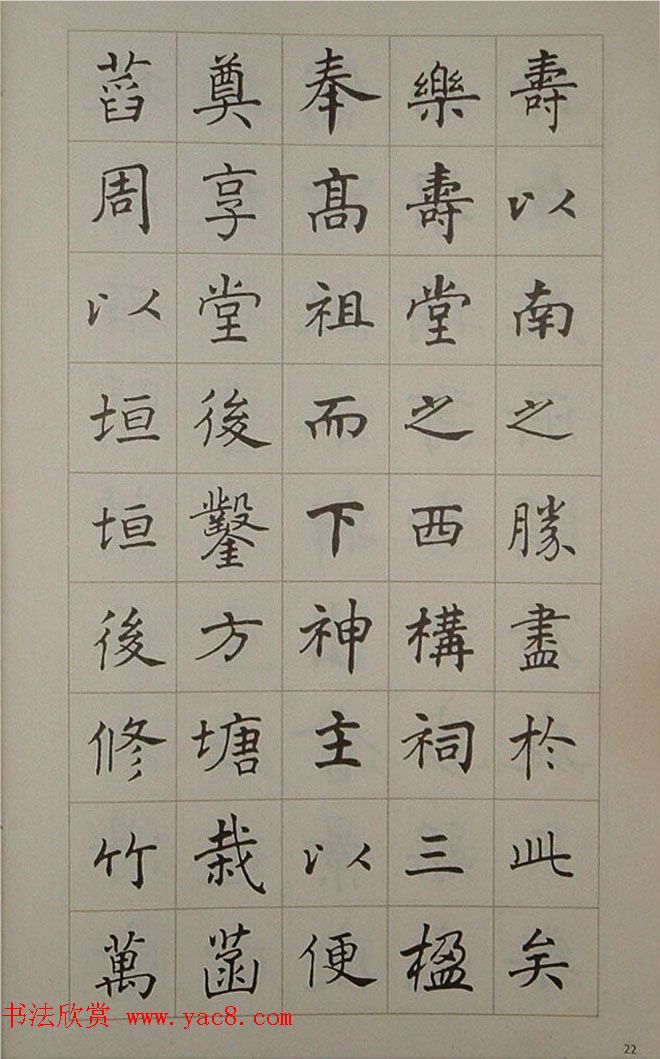 壽以南之勝盡於此矣
樂壽堂之西構祠三楹
奉高祖而下神主以便
奠享堂後鑿方塘栽菡
萏周以垣垣後修竹萬
书法欣赏 www.yac8.com
22